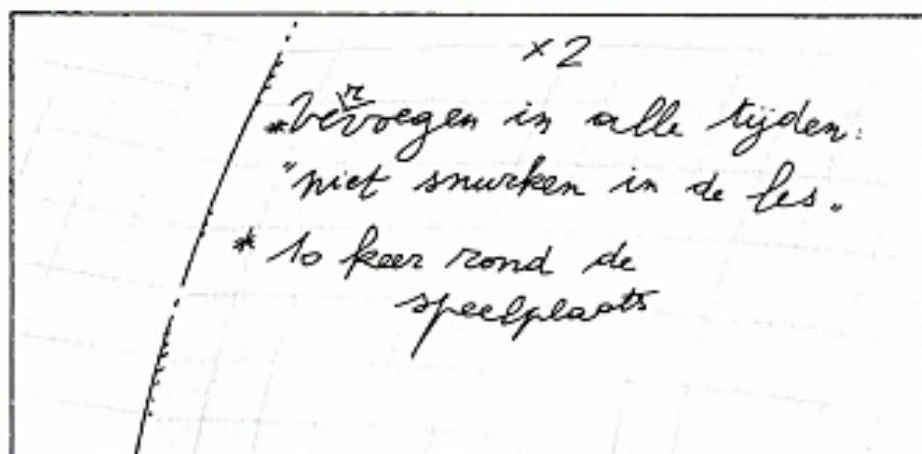 ×2
* vervoegen in alle tijden:
"niet snurken in de les"
* 10 keer rond de
speelplaats